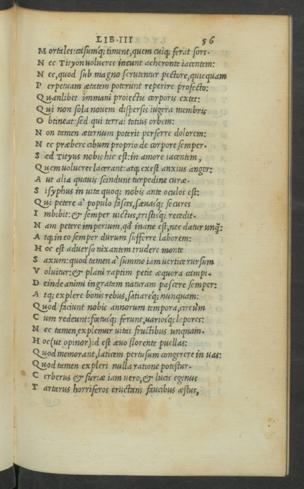 LIB·III 56
M ortales: casumq; timent, quem cuiq; ferat sors.
N ec Tityon uolucres ineunt acheronte iacentem:
N ec, quod sub magno scrutentur pectore, quicquam
P erpetuam ætatem poterunt reperire profecto:
Q uamlibet immani proiectu corporis extet:
Q ui non sola nouem dispersis iugera membris
O btineat: sed qui terrai totius orbem:
N on tamen æternum poterit perferre dolorem:
N ec præbere cibum proprio de corpore semper.
S ed Tityus nobis hic est: in amore iacentem,
Q uem uolucres lacerant: atq; exest anxius angor:
A ut alia quauis scindunt turpedine curæ.
S isyphus in uita quoq; nobis ante oculos est:
Q ui petere a' populo fasces, sæuasq; secures
I mbibit: & semper uictus, tristisq; recedit.
N am petere imperium, qd inane est, nec datur unq̃:
A tq; in eo semper durum sufferre laborem:
H oc est aduerso nixantem trudere monte
S axum: quod tamen a' summo iam uertice rursum
V oluitur: & plani raptim petit æquora campi.
D einde animi ingratam naturam pascere semper:
A tq; explere bonis rebus, satiareq; nunquam:
Q uod faciunt nobis annorum tempora, circum
C um redeunt: fœtusq; ferunt, uariosq; lepores:
N ec tamen explemur uitai fructibus unquam.
H oc (ut opinor) id est æuo florente puellas:
Q uod memorant, laticem pertusum congerere in uas:
Q uod tamen expleri nulla ratione potestur.
C erberus & furiæ iam uero, & lucis egenus
T artarus horriferos eructans faucibus æstus,